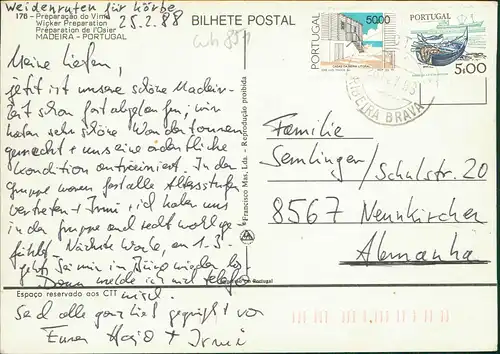 Weidenruten für Körbe
176 - Preparação do Vime
Wicker Preparation
Préparation de l'Osier
MADEIRA - PORTUGAL
25.2.88
BILHETE POSTAL
PORTUGAL
5000
PORTUGAL
5.00
RIBEIRA BRAVA
Meine Lieben,
jetzt ist unsere schöne Madeira-
zeit schon fast abgelaufen; wir
haben sehr schöne Wandertouren
gemacht + uns eine ordentliche
Kondition antrainiert. In der
Gruppe waren fast alle Altersstufen
vertreten + Irmi + ich haben uns
in der Gruppe auch recht wohl ge-
fühlt. Nächste Woche, am 1.3.
geht's bei mir im Büro wieder los.
Dann melde ich mich telefo-
nisch.
Seid alle ganz lieb gegrüßt von
Eurer
+ Irmi
Francisco Mas, Lda. - Reprodução proibida
Portugal
Espaço reservado aos CTT
Familie
Semlinger
Schulstr. 20
8567 Neunkirchen
Alemanha